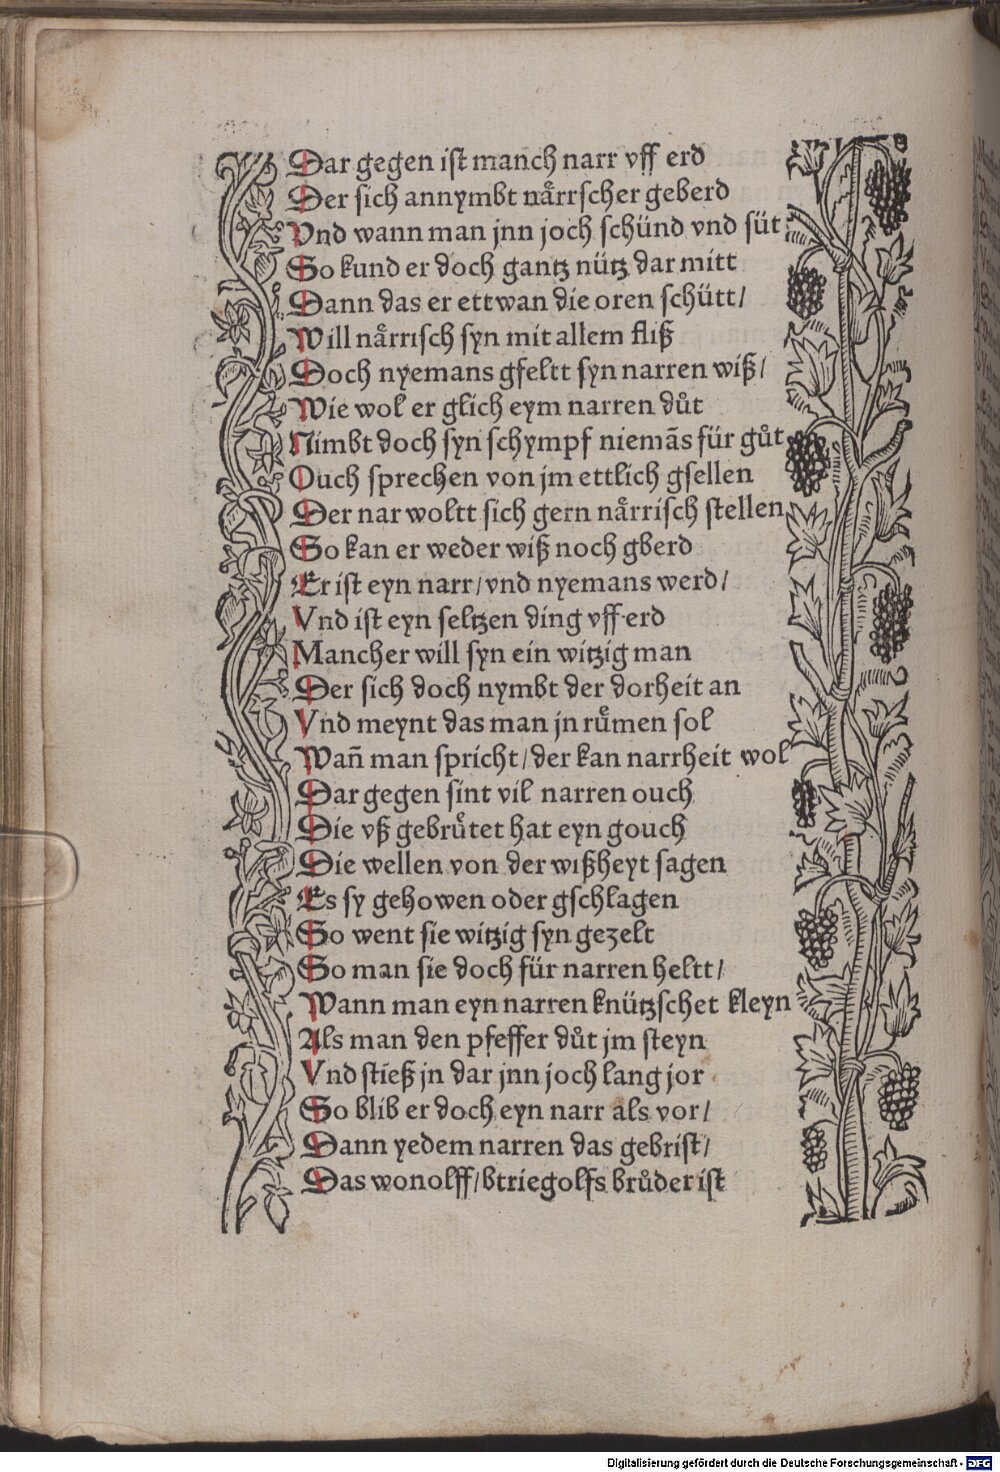 Dar gegen ist manch narr vff erd
Der sich annymbt naͤrrscher geberd
Vnd wann man jnn joch schünd vnd süt
So kund er doch gantz nütz dar mitt
Dann das er ettwan die oren schütt/
Will naͤrrisch syn mit allem fliß
Doch nyemans gfeltt syn narren wiß/
Wie wol er glich eym narren duͦt
Nimbt doch syn schympf niemãs für guͦt
Ouch sprechen von jm ettlich gsellen
Der nar woltt sich gern naͤrrisch stellen
So kan er weder wiß noch gberd
Er ist eyn narr/vnd nyemans werd/
Vnd ist eyn seltzen ding vff erd
Mancher will syn ein witzig man
Der sich doch nymbt der dorheit an
Vnd meynt das man jn ruͤmen sol
Wañ man spricht/der kan narrheit wol
Dar gegen sint vil narren ouch
Die vß gebruͤtet hat eyn gouch
Die wellen von der wißheyt sagen
Es sy gehowen oder gschlagen
So went sie witzig syn gezelt
So man sie doch für narren heltt/
Wann man eyn narren knützschet kleyn
Als man den pfeffer duͦt jm steyn
Vnd stieß jn dar jnn joch lang jor
So blib er doch eyn narr als vor/
Dann yedem narren das gebrist/
Das wonolff/btriegolfs bruͦder ist
Digitalisierung gefördert durch die Deutsche Forschungsgemeinschaft - DFG